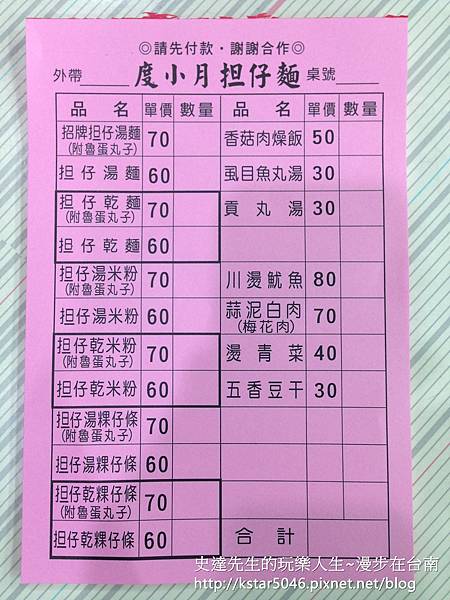 ◎請先付款·謝謝合作◎
外帶 度小月担仔麵 桌號
品名 單價 數量 品名 單價 數量
招牌担仔湯麵 70 香菇肉燥飯 50
(附魯蛋丸子)
担仔湯麵 60 虱目魚丸湯 30
担仔乾麵 70 貢丸湯 30
(附魯蛋丸子)
担仔乾麵 60
担仔湯米粉 70 川燙魷魚 80
(附魯蛋丸子)
担仔湯米粉 60 蒜泥白肉 70
(梅花肉)
担仔乾米粉 70 燙青菜 40
(附魯蛋丸子)
担仔乾米粉 60 五香豆干 30
担仔湯粿仔條 70
(附魯蛋丸子)
担仔湯粿仔條 60
担仔乾粿仔條 70
(附魯蛋丸子)
担仔乾粿仔條 60 合計
史達先生的玩樂人生~漫步在台南
http://kstar5046.pixnet.net/blog